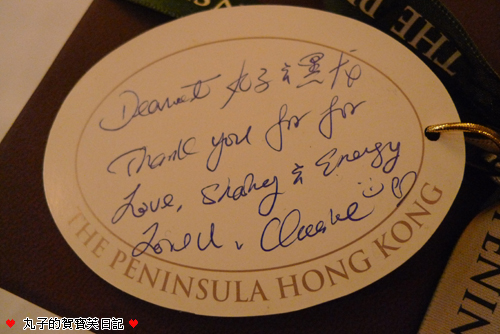 Dearest 丸子 & 黑龙
Thank you for for
Love, Sharing & Energy
Love U, Claire
THE PENINSULA HONG KONG
THE P
ENIN
♥ 丸子的賀寶芙日記 ♥